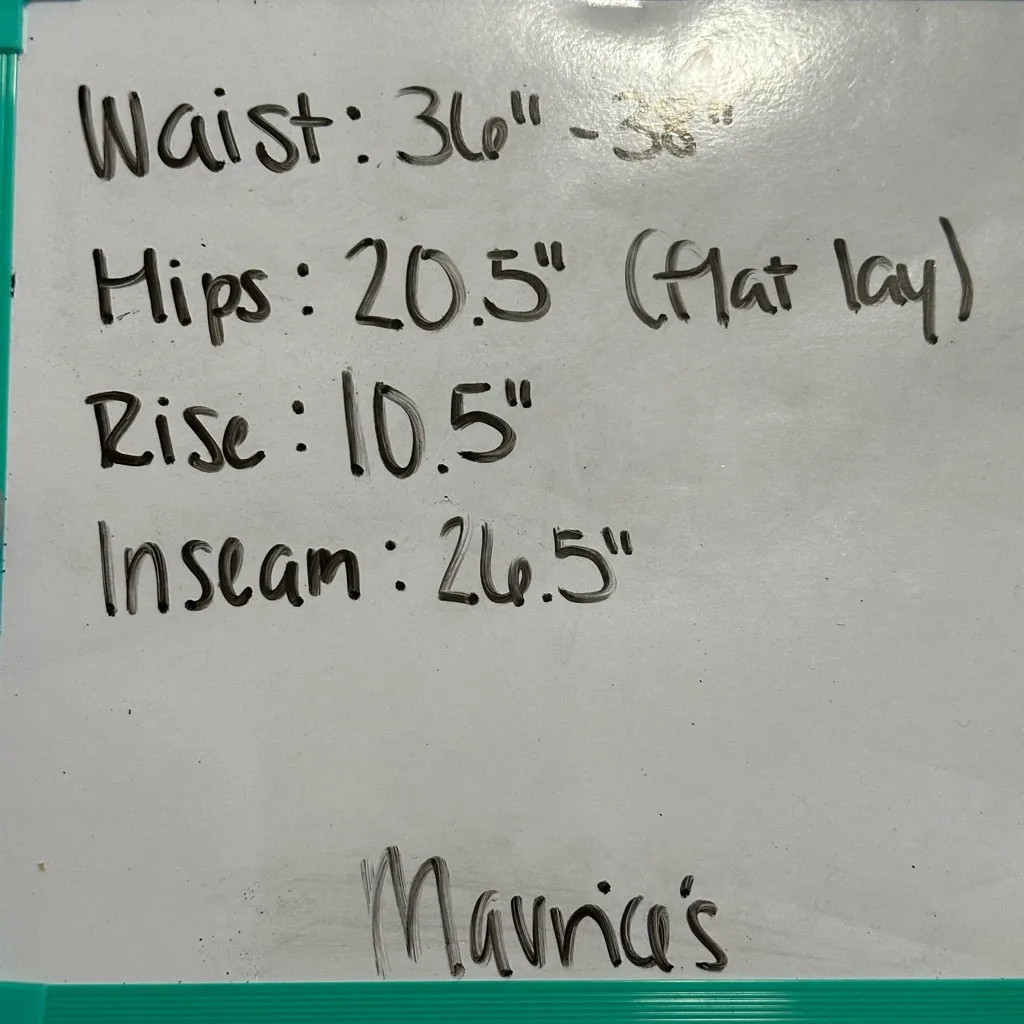 Waist: 36" - 38"
Hips: 20.5" (flat lay)
Rise: 10.5"
Inseam: 26.5"
Maurice's